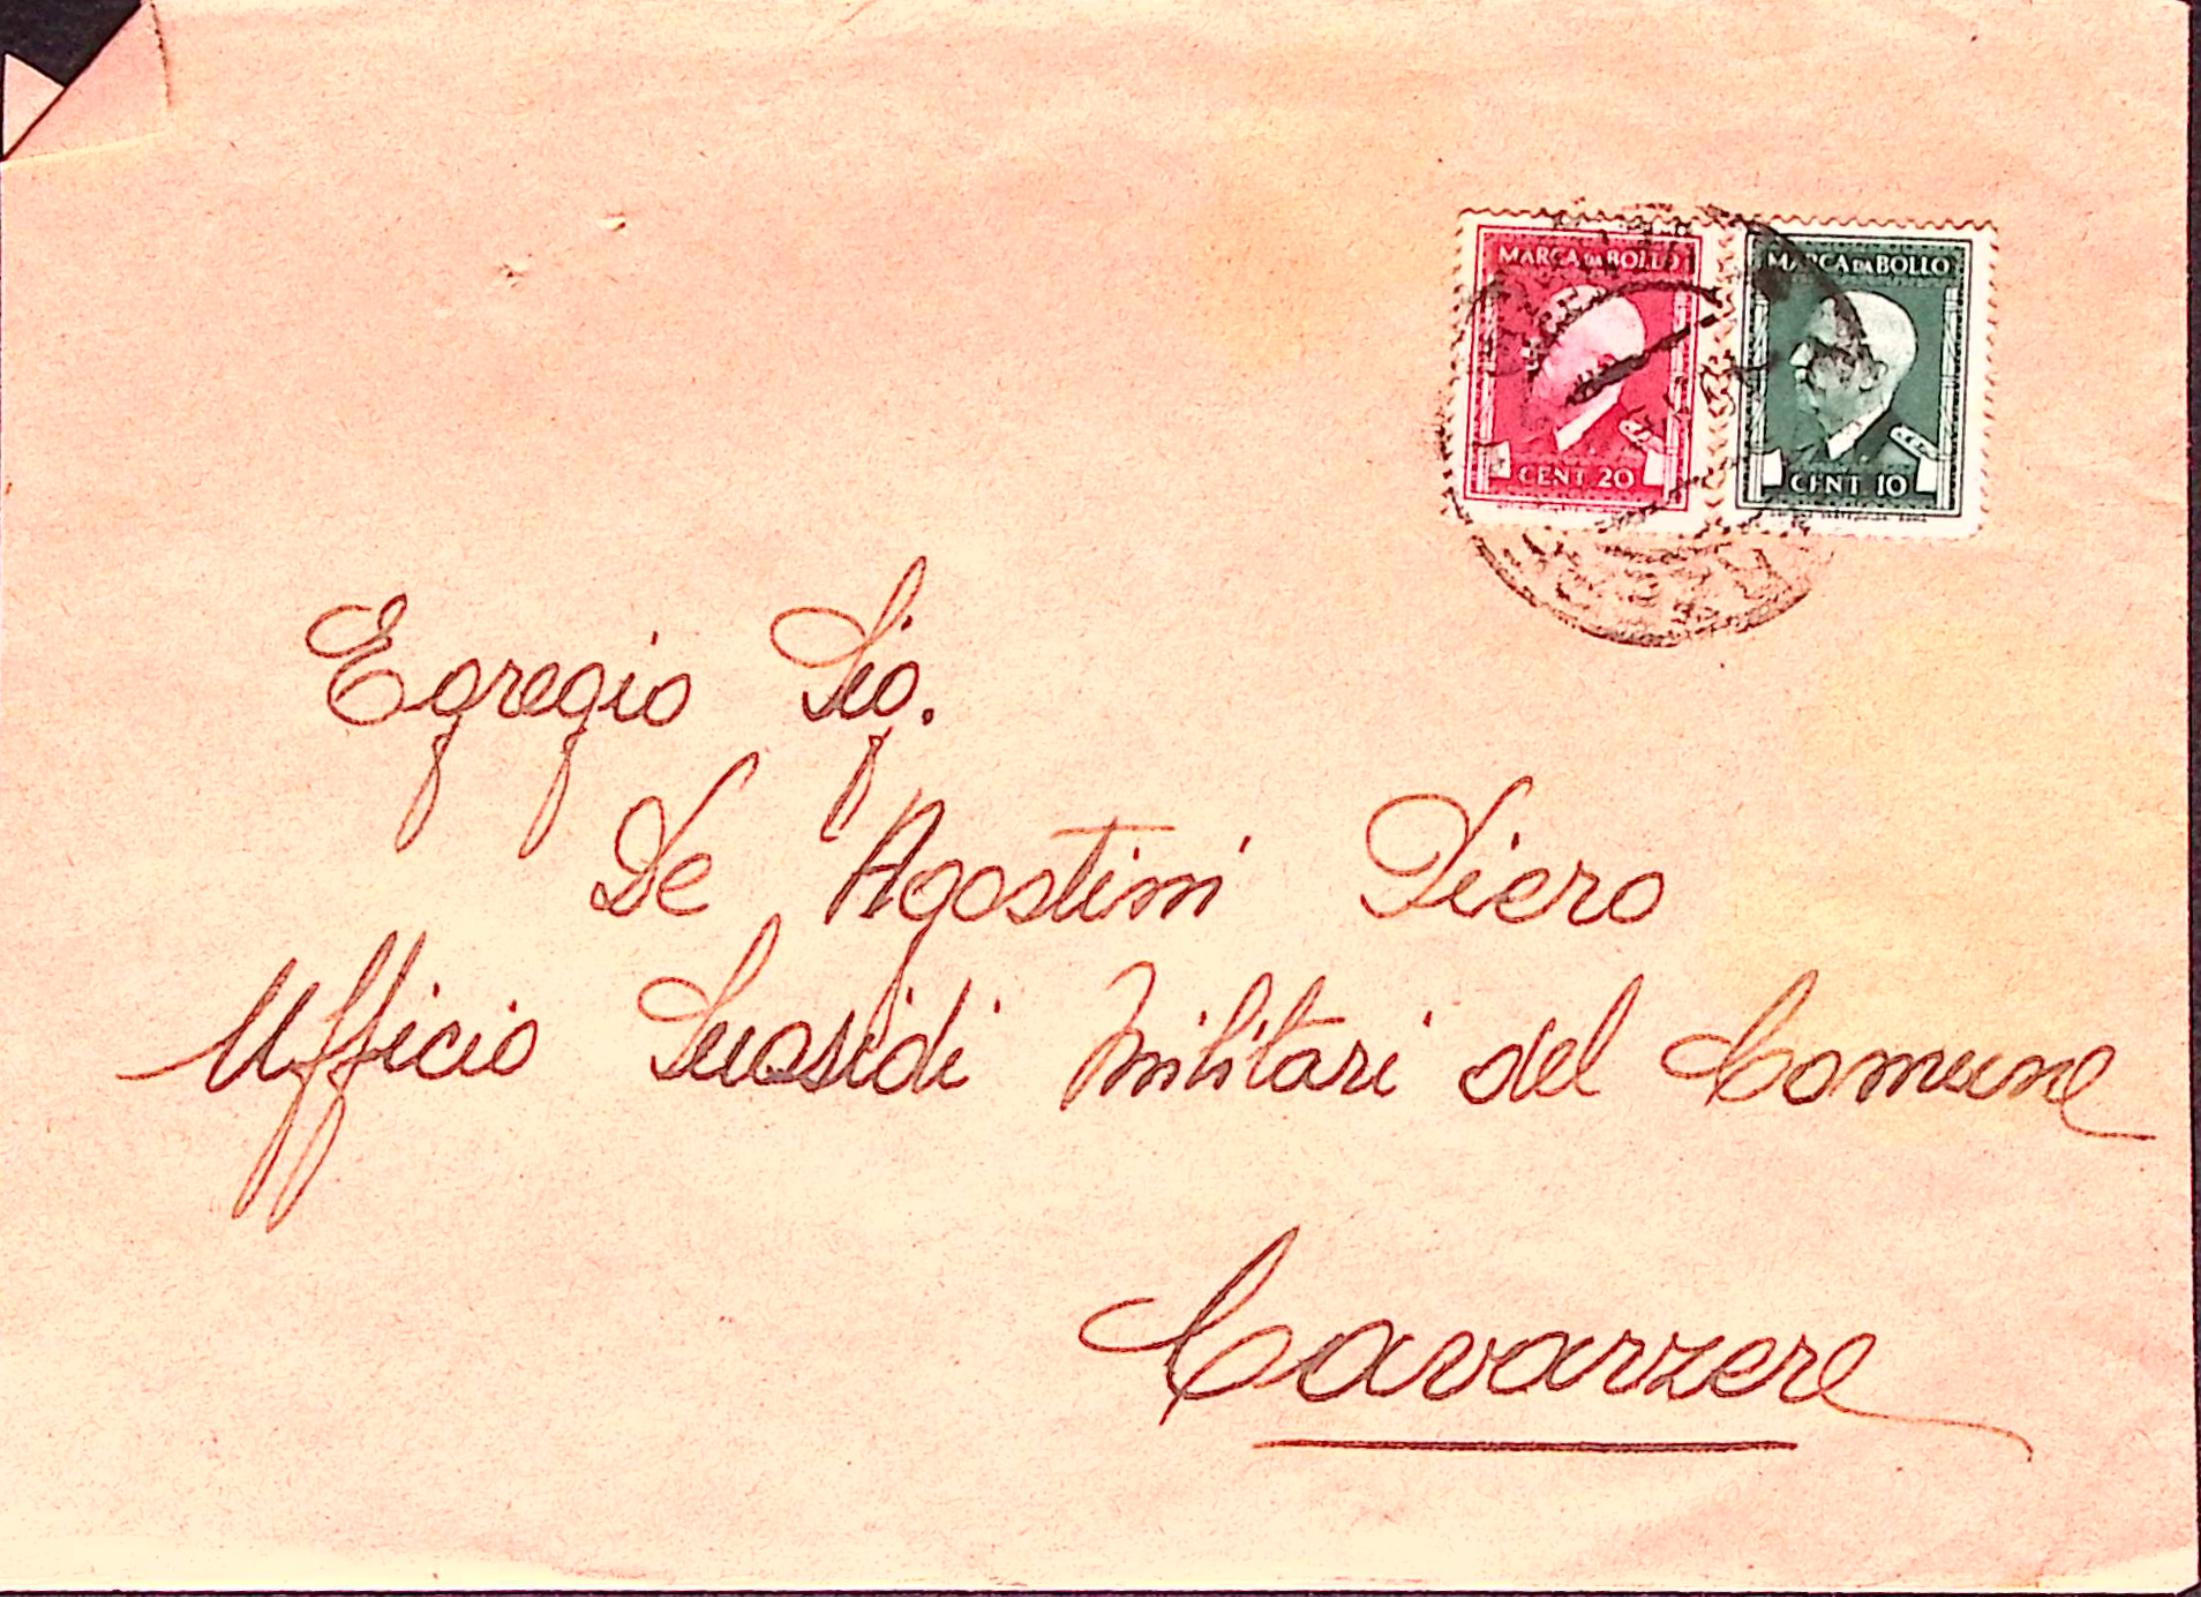 MARCA DA BOLLO
CENT. 20
MARCA DA BOLLO
CENT. 10
Egregio Sig.
De Agostini Piero
Ufficio Sussidi Militari del Comune
Cavarzere